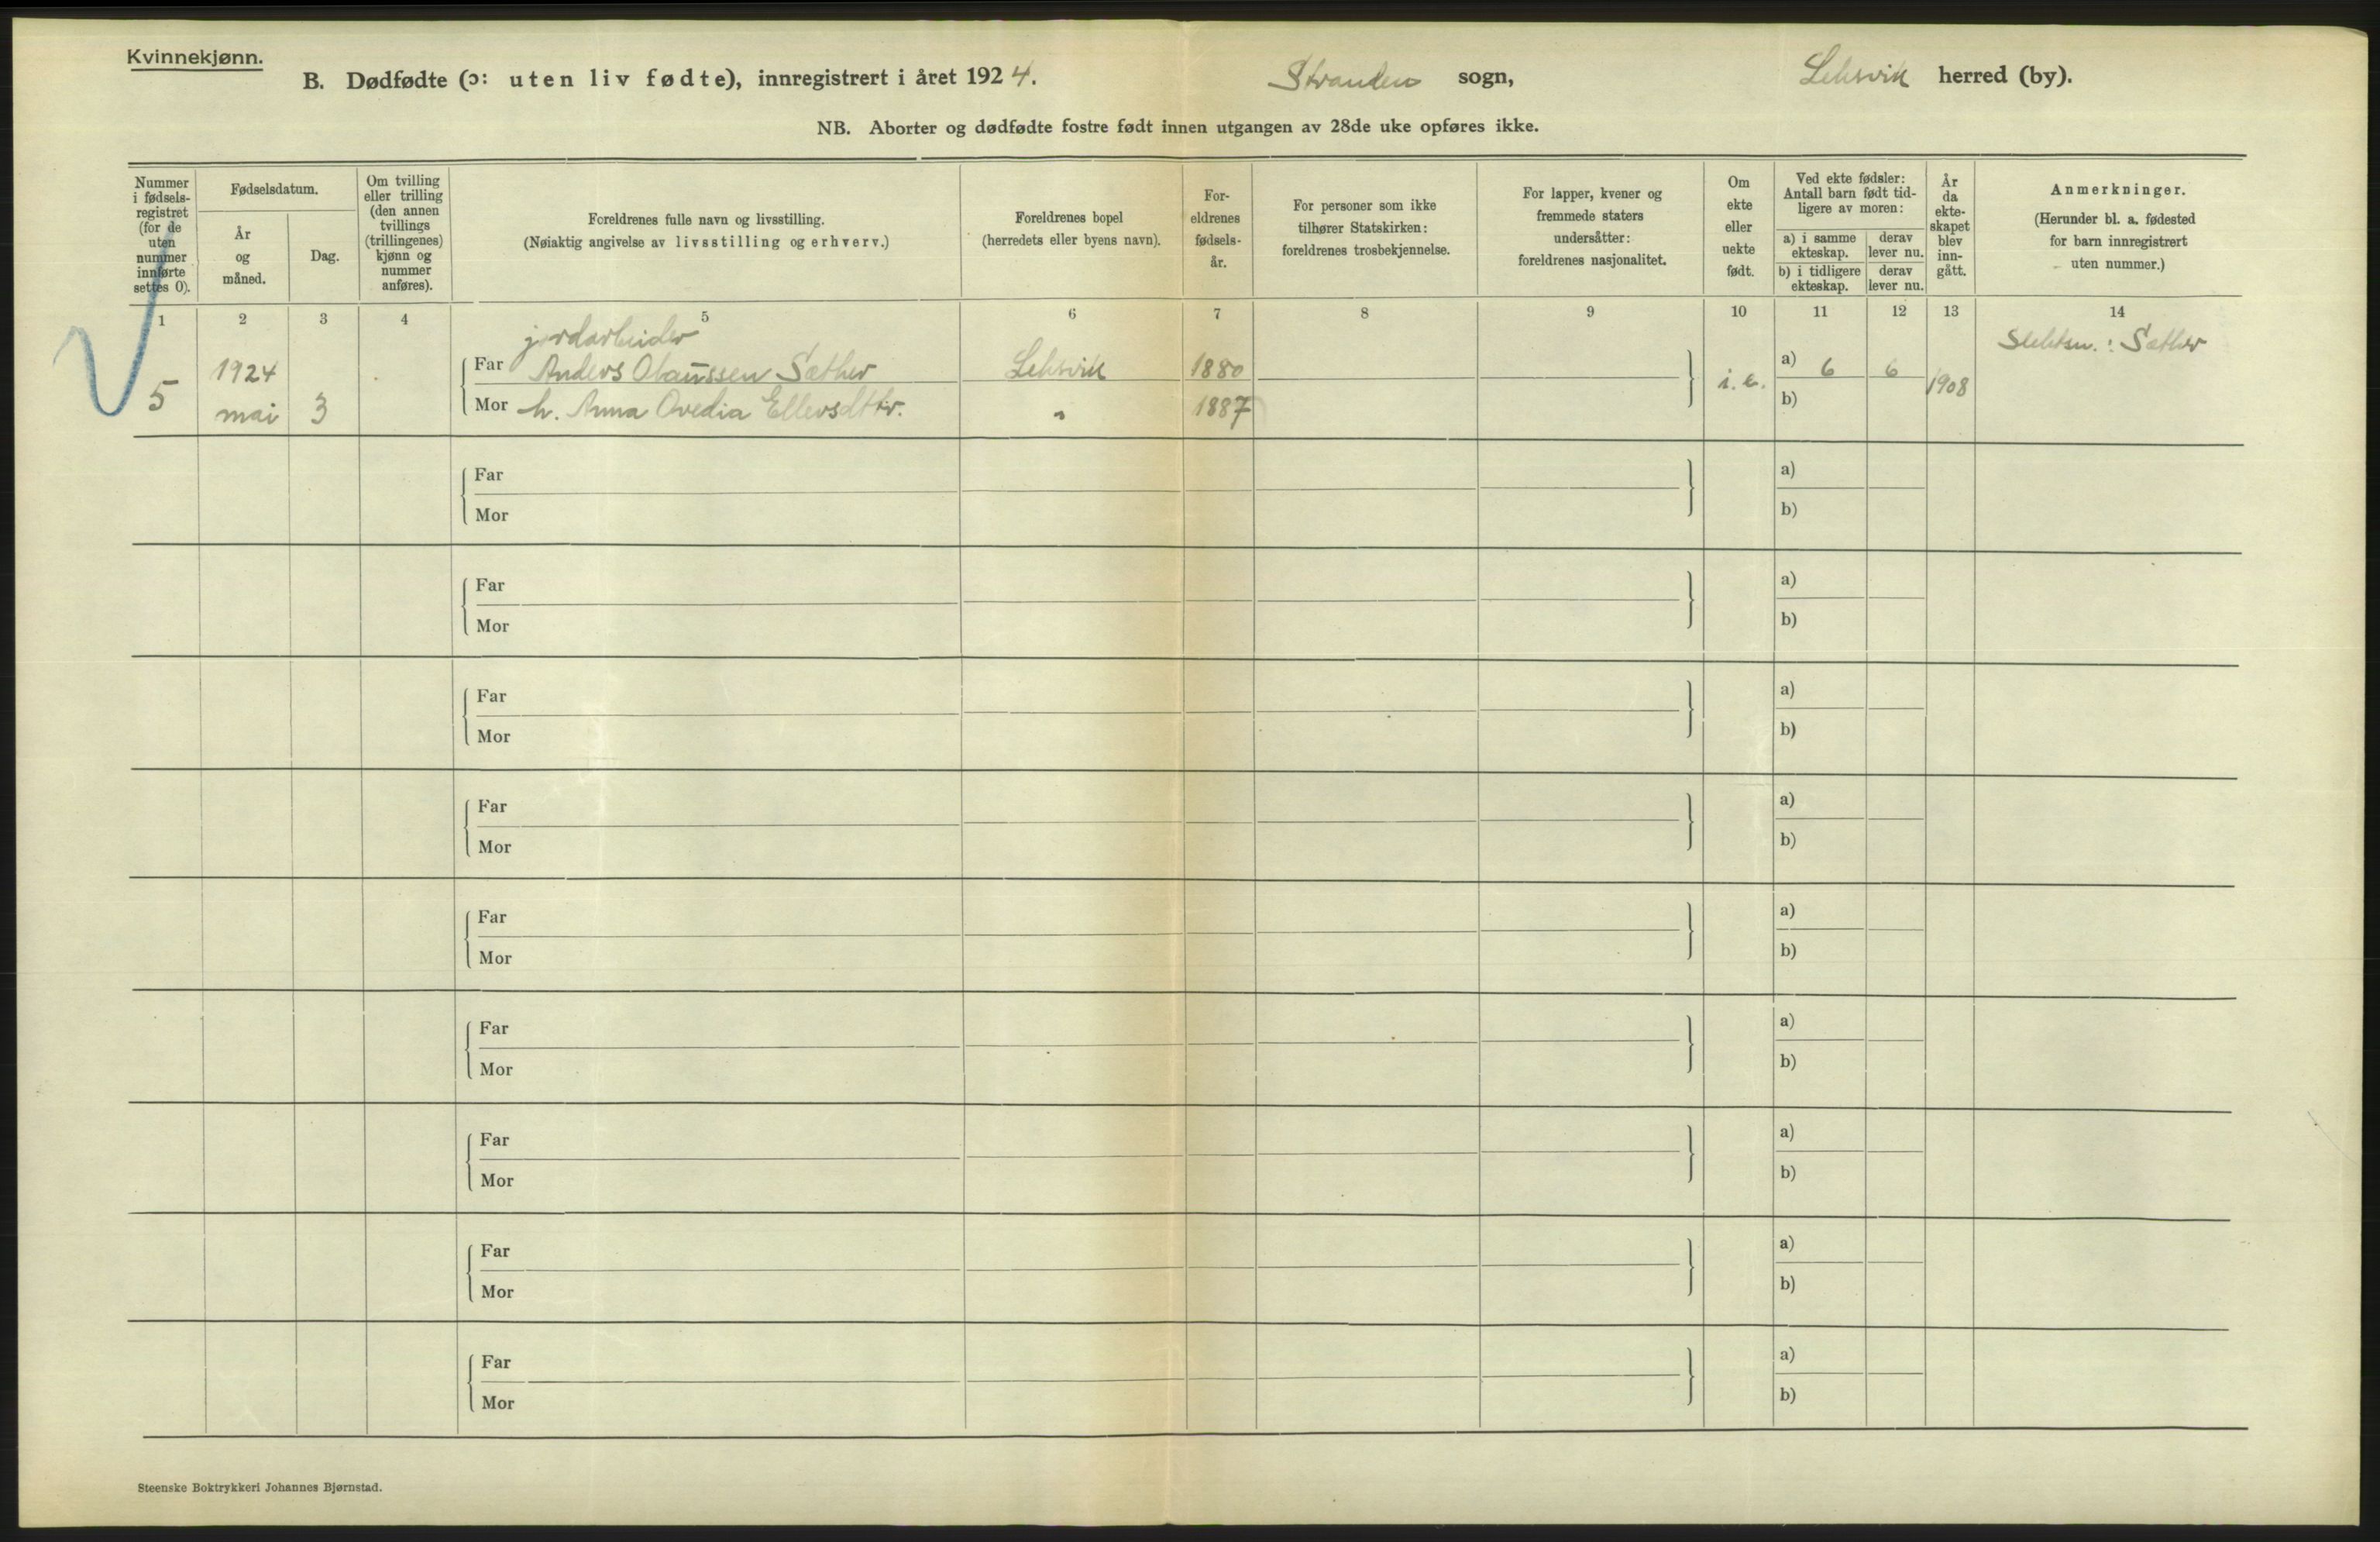 Kvinnekjønn.
B. Dødfødte (ɔ: uten liv fødte), innregistrert i året 1924. Stranden sogn, Leksvik herred (by).
NB. Aborter og dødfødte fostre født innen utgangen av 28de uke opføres ikke.
Nummer
i fødsels-
registret
(for de
uten
nummer
innførte
settes 0).
Fødselsdatum.
År
og
måned.
Dag.
Om tvilling
eller trilling
(den annen
tvillings
(trillingenes)
kjønn og
nummer
anføres).
Foreldrenes fulle navn og livsstilling.
(Nøiaktig angivelse av livsstilling og erhverv.)
Foreldrenes bopel
(herredets eller byens navn).
For-
eldrenes
fødsels-
år.
For personer som ikke
tilhører Statskirken:
foreldrenes trosbekjennelse.
For lapper, kvener og
fremmede staters
undersåtter:
foreldrenes nasjonalitet.
Om
ekte
eller
uekte
født.
Ved ekte fødsler:
Antall barn født tid-
ligere av moren:
a) i samme
ekteskap.
derav
lever nu.
b) i tidligere
ekteskap.
derav
lever nu.
År
da
ekte-
skapet
blev
inn-
gått.
Anmerkninger.
(Herunder bl. a. fødested
for barn innregistrert
uten nummer.)
1 2 3 4 5 6 7 8 9 10 11 12 13 14
jordarbeider
Slektsn.: Sæther
1924 Far Anders Olaussen Sæther Leksvik 1880 a) 6 6
5 i. e. 1908
mai 3 Mor h. Anna Ovedia Ellevsdttr. " 1887 b)
Far a)
Mor b)
Far a)
Mor b)
Far a)
Mor b)
Far a)
Mor b)
Far a)
Mor b)
Far a)
Mor b)
Far a)
Mor b)
Far a)
Mor b)
Far a)
Mor b)
Steenske Boktrykkeri Johannes Bjørnstad.